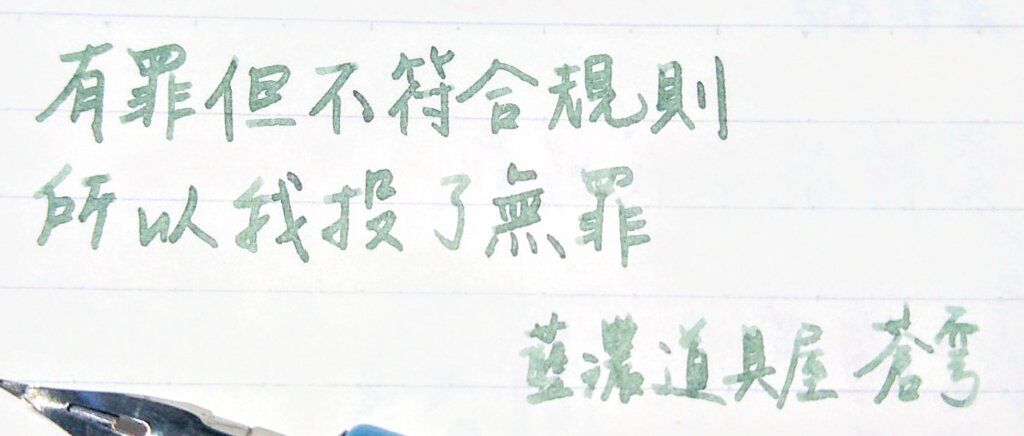 有罪但不符合規則
所以我投了無罪
藍濃道具屋 蒼穹